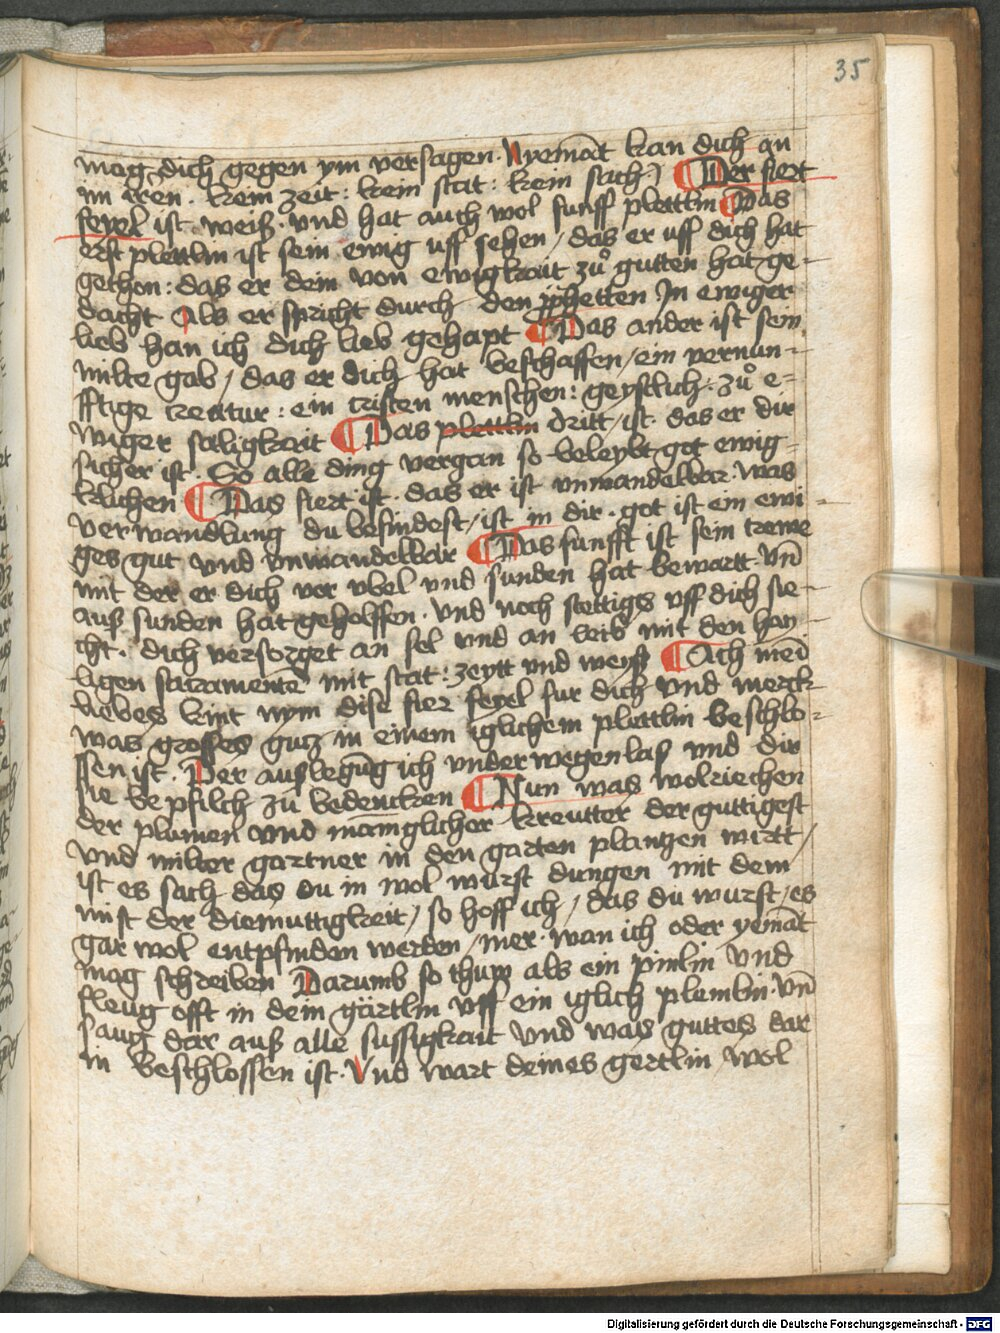 35
mag dich gegen ym versagen. Nyemāt kan dich an
im iren. kein zeit: kein stat: kein sach) Der fiert
feyel ist weiß. vnd hat auch wol funff plettlin Das
erst plettlin ist sein ewig uff sehen / das er uff dich hat
gethon: das er dein von ewigkait zů gutten hat ge-
dacht Als er spricht durch den ꝓpheten In ewiger
lieb han ich dich lieb gehapt Das ander ist sein
milte gab / das er dich hat beschaffen / ein vernun-
fftige creatur: ein cristen menschen: geystlich: zů e-
wiger saligkait Das plettlin dritt / ist. das er dir
sicher ist. So alle ding vergan so beleybt got ewig-
klichen Das fiert ist. das er ist vnwandelbar. was
verwandlung du befindest / ist in dir. got ist ein ewi-
ges gut vnd vnwandelbar Das funfft ist sein trewe
mit der er dich vor vbel vnd sunden hat bewart. vn̄
auß sunden hat geholffen. vnd noch stettigs uff dich sie-
cht. dich versorget an sel vnd an leib mit den hay-
ligen sacramente mit stat: zeytt vnd weyß Ach mei
liebes kint nym dise fier feyel fur dich vnd merck
was grosses gutz in einem iglichem plettlin beschlo-
ssen ist. Der außlegūg ich vnderwegen laß vnd dir
sie bepfilch zů bedencken Nun was wolriechen
der plumen vnd manglicher kreutter der guttigest
vnd milter gartner in den garten plantzen wirtt /
ist es sach das du in wol wurst dungen mit dem
mist der diemuttigkeit / so hoff ich / das du wurst / es
gar wol entpfinden werden / mer. wan ich oder yemāt
mag schreiben Darumb so thuw als ein pinlin vnd
fleug offt in dem gärtlin vff ein iglich plemlin vn̄
saug dar auß alle sussigkait vnd was guttes dar
in beschlossen ist. Vnd wart deines gertlin wol
Digitalisierung gefördert durch die Deutsche Forschungsgemeinschaft - DFG